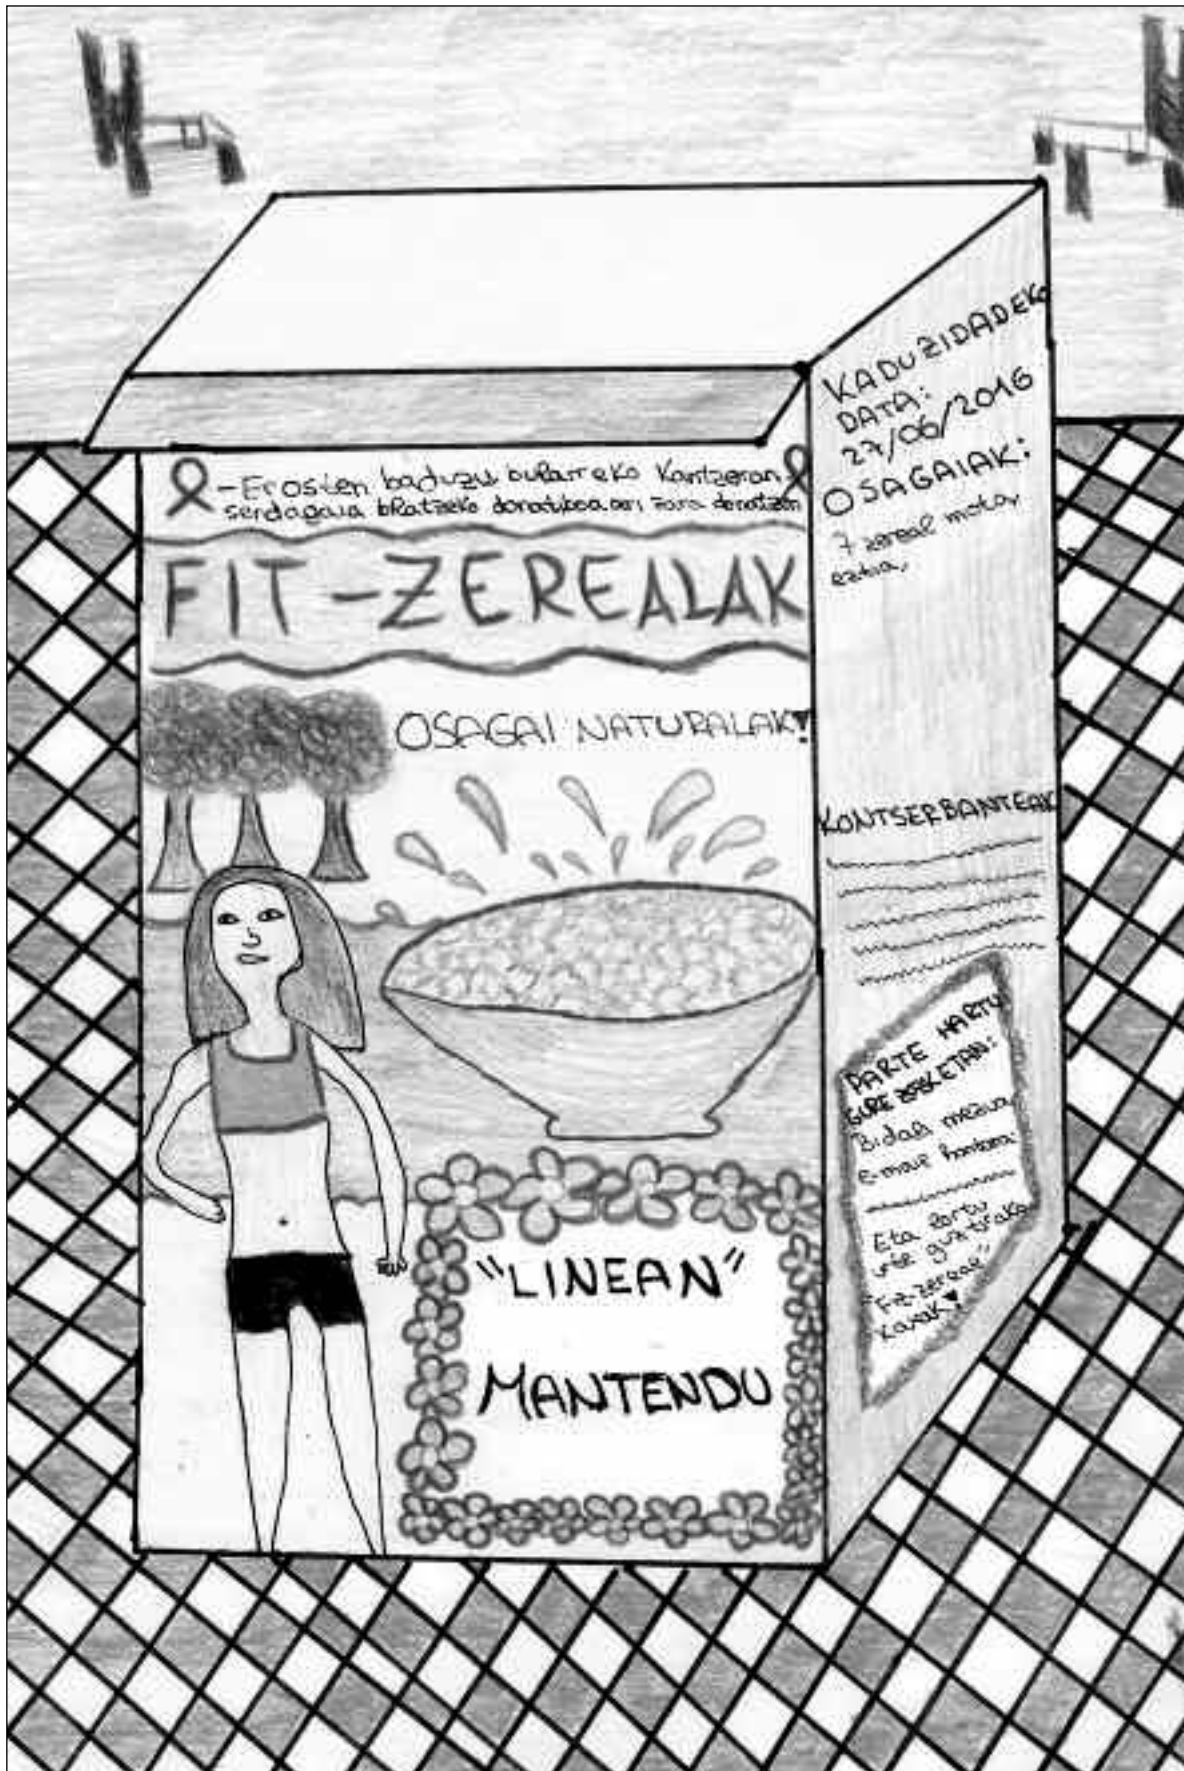 -Erosten baduzu bularreko kantzeran
sendagaia bilatzeko donatzen
FIT-ZEREALAK
OSAGAI NATURALAK!
"LINEAN"
MANTENDU
KADUZIDADEKO
DATA:
27/06/2016
OSAGAIAK:
7 zereal mota,
eztia,
KONTSERBANTEAK
PARTE HARTU
GURE
Bidali mezua
e-mail hontara:
Eta lortu
urte guztirako
"Fit-zereal"
kaxak!